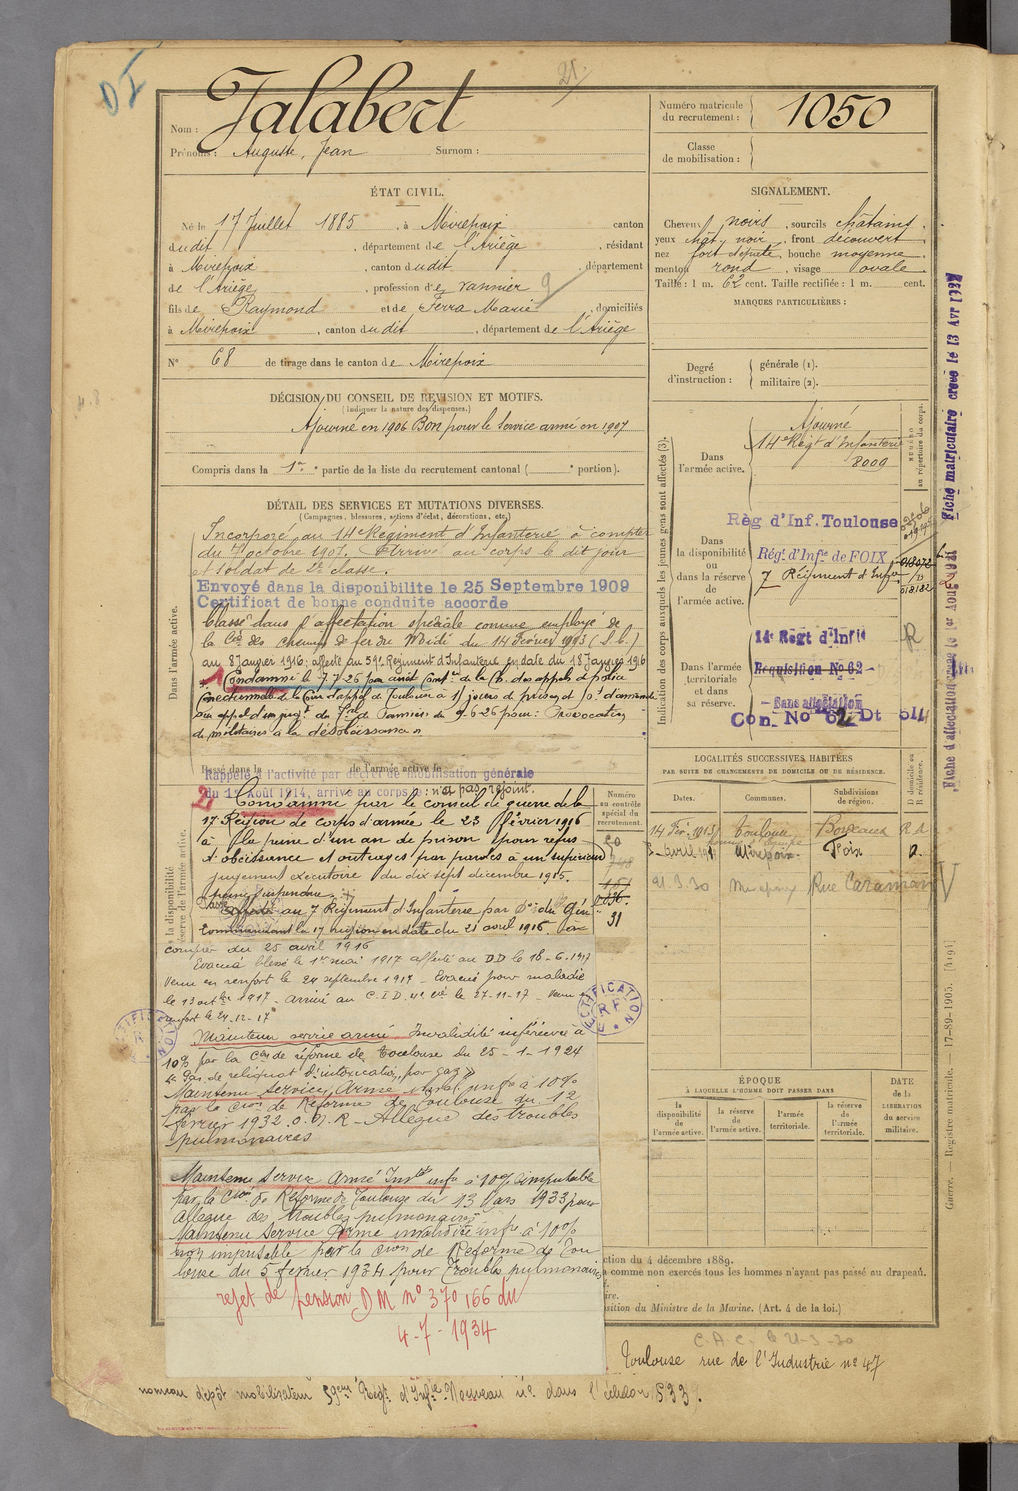 DI
21.
Nom : Jalabert
Prénoms : Auguste, Jean Surnom :
Numéro matricule
du recrutement : 1050
Classe
de mobilisation :
ÉTAT CIVIL.
Né le 17 Juillet 1885, à Mirepoix canton
dudit, département de l'Ariège, résidant
à Mirepoix, canton dudit, département
de l'Ariège, profession de vannier
fils de Raymond et de Ferra Marie, domiciliés
à Mirepoix, canton dudit, département de l'Ariège
N° 68 de tirage dans le canton de Mirepoix
SIGNALEMENT.
Cheveux noirs, sourcils châtains,
yeux chât. noir, front découvert,
nez fort, bouche moyenne,
menton rond, visage ovale.
Taille : 1 m. 62 cent. Taille rectifiée : 1 m. cent.
MARQUES PARTICULIÈRES :
Degré
d'instruction :
générale (1).
militaire (2).
DÉCISION DU CONSEIL DE REVISION ET MOTIFS.
(Indiquer la nature des dispenses.)
Ajourné en 1906 Bon pour le service armé en 1907
Compris dans la 1re partie de la liste du recrutement cantonal ( portion).
DÉTAIL DES SERVICES ET MUTATIONS DIVERSES.
(Campagnes, blessures, actions d'éclat, décorations, etc.)
Dans l'armée active.
Incorporé au 14e Régiment d'Infanterie à compter
du 7 octobre 1907. Arrivé au corps le dit jour
et soldat de 2e classe.
Envoyé dans la disponibilité le 25 Septembre 1909
Certificat de bonne conduite accordé
Classé dans l'affectation spéciale comme employé de
la Cie des chemins de fer du Midi du 14 Février 1913 (S.C.)
au 8 Janvier 1916; affecté au 59e Régiment d'Infanterie en date du 18 Janvier 1916
1 Condamné le 7.7.26 par arrêt de la Ch. des appels de police
Correctionnelle de la Cour d'appel de Toulouse à 15 jours de prison et d'amende
sur appel d'un jugt du de Pamiers du 9.6.26 pour : Provocation
de militaires à la désobéissance
Passé dans la de l'armée active le
Rappelé à l'activité par décret de mobilisation générale
du 1er Août 1914, arrivé au corps le : n'a pas rejoint.
2 Condamné par le conseil de guerre de la
17e Région de corps d'armée le 23 février 1916
à la peine d'un an de prison pour refus
d'obéissance et outrages par paroles à un supérieur
jugement exécutoire du dix sept décembre 1915.
peine suspendue.
Affecté au 7 Régiment d'Infanterie par Don du Génal
Commandant la 17 région en date du 21 avril 1916. à
compter du 25 avril 1916
Evacué blessé le 1er mai 1917 affecté au DD le 16-6-1917
Venu en renfort le 24 septembre 1917 - Evacué pour maladie
le 13 octbre 1917. arrivé au C.I.D. le 27-11-17 - Venu en
renfort le 24-12-17
Maintenu service armé Invalidité inférieure à
10% par la Con de réforme de Toulouse du 25-1-1924
Pas de reliquat d'intoxication par gaz
Maintenu Service Armé inval. infre à 10%
par la Cion de Réforme de Toulouse du 12
fevrier 1932. - Allègue des troubles
pulmonaires
Maintenu Service Armé Invté infre à 10% imputable
par la Cion de Réforme de Toulouse du 13 Mars 1933 pour
allegue des troubles pulmonaires
Maintenu Service Armé invalidité infre à 10%
non imputable par la Cion de Reforme de Tou
louse du 5 fevrier 1934 pour Troubles pulmonaires
rejet de pension DM n° 370 166 du
4-7-1934
RECTIFICATION RF
Numéro
au contrôle
spécial du
recrutement.
31
Indication des corps auxquels les jeunes gens sont affectés (3).
Dans
l'armée active.
Ajourné
14e Régt d'Infanterie
8009
NUMÉRO
au répertoire du corps.
Dans
la disponibilité
ou
dans la réserve
de
l'armée active.
Rég d'Inf. Toulouse
Régt d'Infie de FOIX
7 Régiment d'Infie
018072
018182
Dans l'armée
territoriale
et dans
sa réserve.
14e Régt d'Infie
Réquisition No 62
Sans affectation
Con. No 62 Dt 514
R
LOCALITÉS SUCCESSIVES HABITÉES
PAR SUITE DE CHANGEMENTS DE DOMICILE OU DE RÉSIDENCE.
Dates. Communes. Subdivisions de région. D domicile ou R résidence.
14 Fév. 1913 Toulouse Bordeaux R
Avril Mirepoix Foix R.
21.3.30 Rue Caraman
ÉPOQUE
À LAQUELLE L'HOMME DOIT PASSER DANS
la disponibilité de l'armée active.
la réserve de l'armée active.
l'armée territoriale.
la réserve de l'armée territoriale.
DATE
de la
LIBÉRATION
du service
militaire.
ction du 4 décembre 1889.
comme non exercés tous les hommes n'ayant pas passé au drapeau.
ire.
sition du Ministre de la Marine. (Art. 4 de la loi.)
C.A.C. le 21-3-30
Toulouse rue de l'Industrie n° 47
nouveau dépôt mobilisateur 59ème Régt d'Infie Nouveau n° dans l'échelon S.33.
Fiche matriculaire créée le 13 Avr 1927
Guerre. — Registre matricule. — 17-89-1905. [4191]